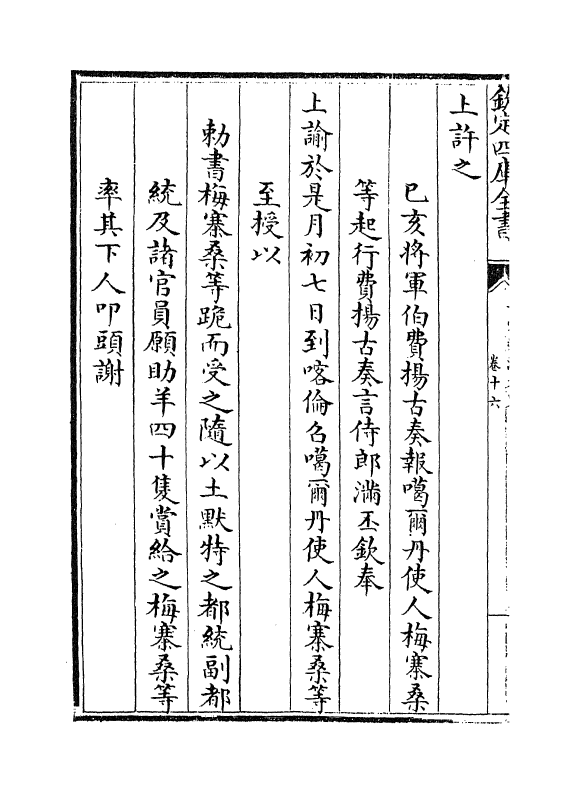 欽定四庫全書
卷十六
上許之
已亥將軍伯費揚古奏報噶爾丹使人梅寨桑
等起行費揚古奏言侍郎滿丕欽奉
上諭於是月初七日到喀倫召噶爾丹使人梅寨桑等
至授以
勅書梅寨桑等跪而受之隨以土默特之都統副都
統及諸官員願助羊四十隻賞給之梅寨桑等
率其下人叩頭謝